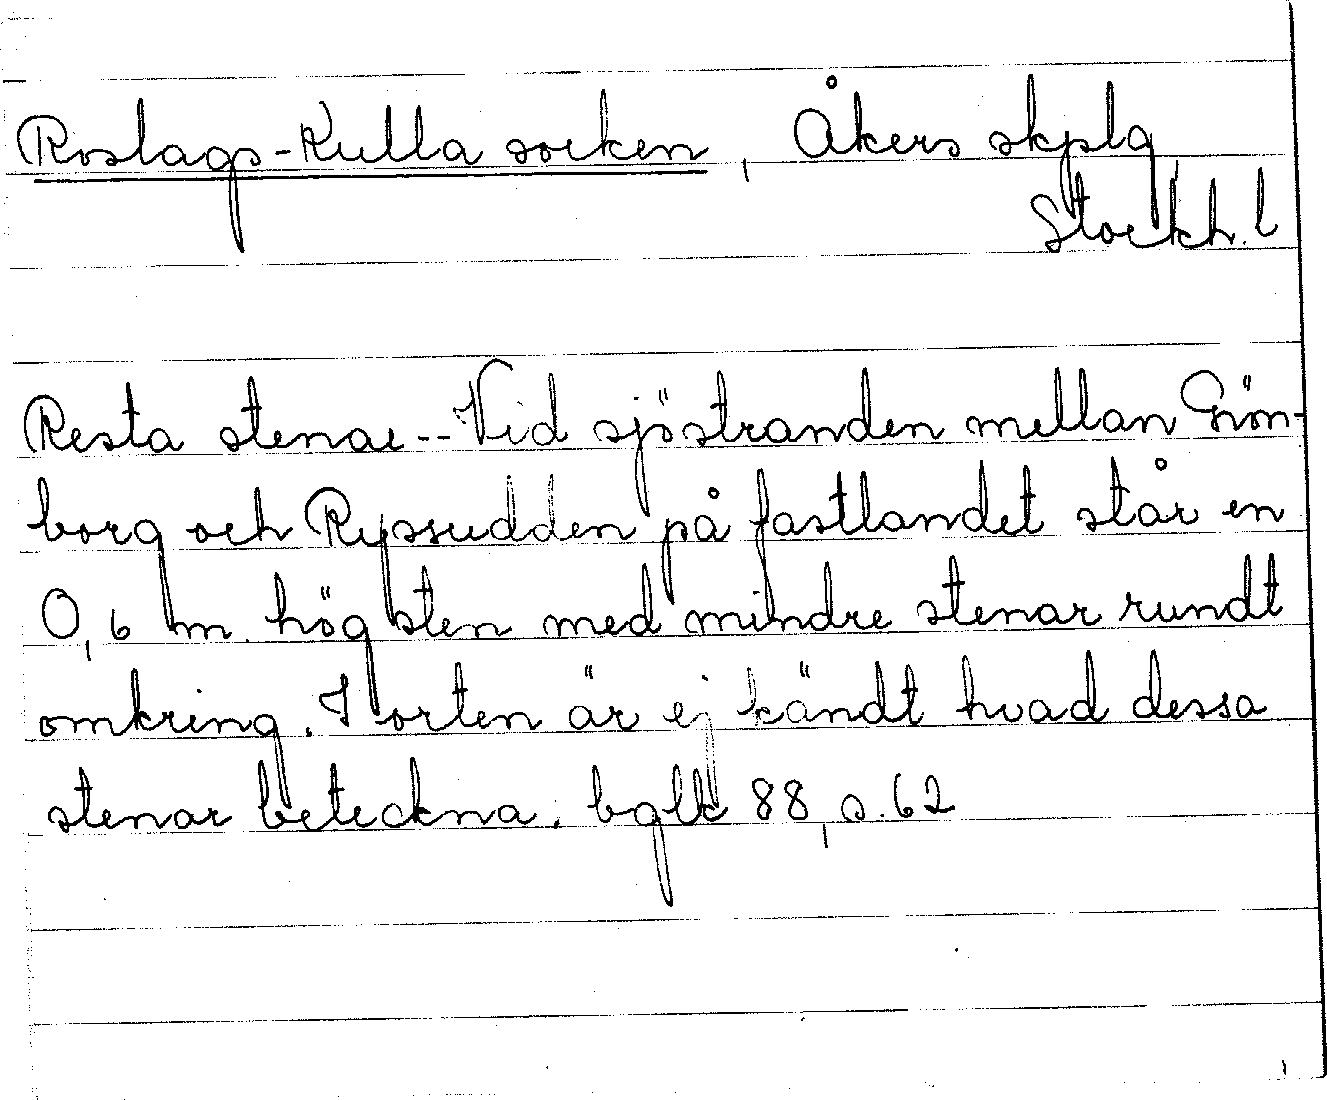 Roslags-Kulla socken, Åkers skplg,
Stockh. l
Resta stenar -- Vid sjöstranden mellan Grön-
borg och Ryssudden på fastlandet står en
0,6 m. hög sten med mindre stenar rundt
omkring. I orten är ej kändt hvad dessa
stenar beteckna. bglk 88, s. 62